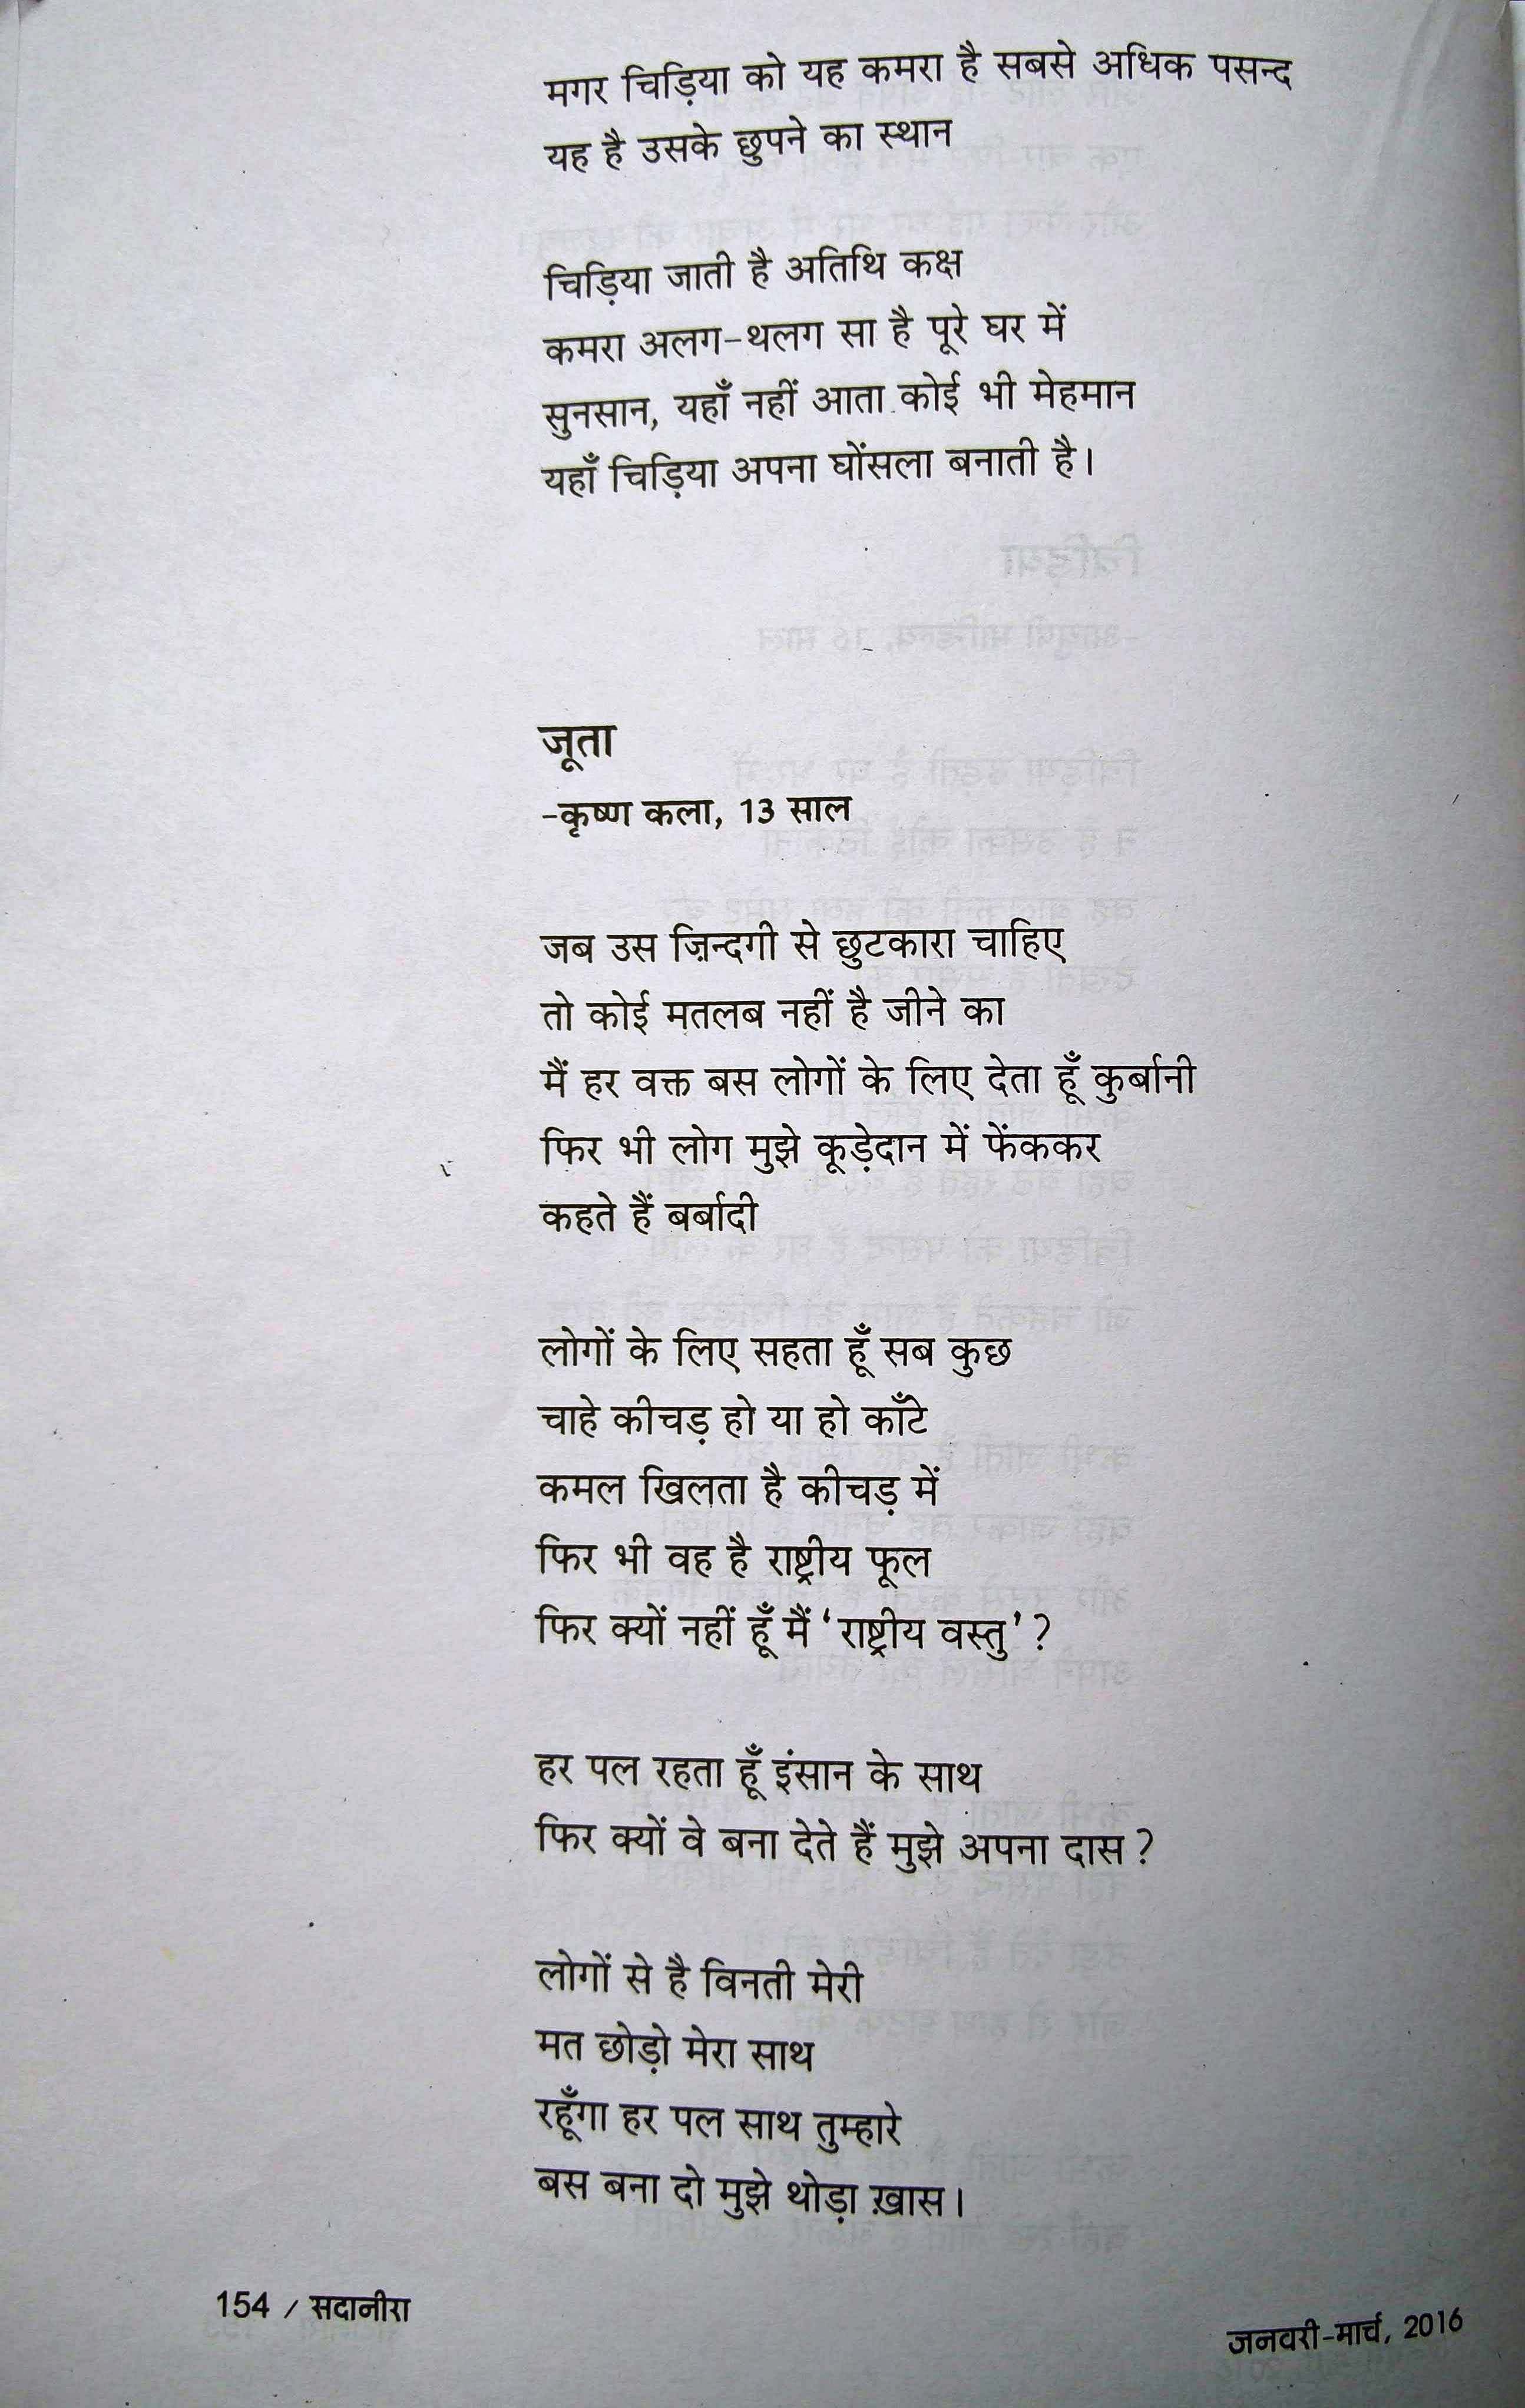 मगर चिड़िया को यह कमरा है सबसे अधिक पसन्द
यह है उसके छुपने का स्थान
चिड़िया जाती है अतिथि कक्ष
कमरा अलग-थलग सा है पूरे घर में
सुनसान, यहाँ नहीं आता कोई भी मेहमान
यहाँ चिड़िया अपना घोंसला बनाती है।
जूता
-कृष्ण कला, 13 साल
जब उस ज़िन्दगी से छुटकारा चाहिए
तो कोई मतलब नहीं है जीने का
मैं हर वक्त बस लोगों के लिए देता हूँ कुर्बानी
फिर भी लोग मुझे कूड़ेदान में फेंककर
कहते हैं बर्बादी
लोगों के लिए सहता हूँ सब कुछ
चाहे कीचड़ हो या हो काँटे
कमल खिलता है कीचड़ में
फिर भी वह है राष्ट्रीय फूल
फिर क्यों नहीं हूँ मैं ‘राष्ट्रीय वस्तु’?
हर पल रहता हूँ इंसान के साथ
फिर क्यों वे बना देते हैं मुझे अपना दास?
लोगों से है विनती मेरी
मत छोड़ो मेरा साथ
रहूँगा हर पल साथ तुम्हारे
बस बना दो मुझे थोड़ा ख़ास।
154 / सदानीरा
जनवरी-मार्च, 2016